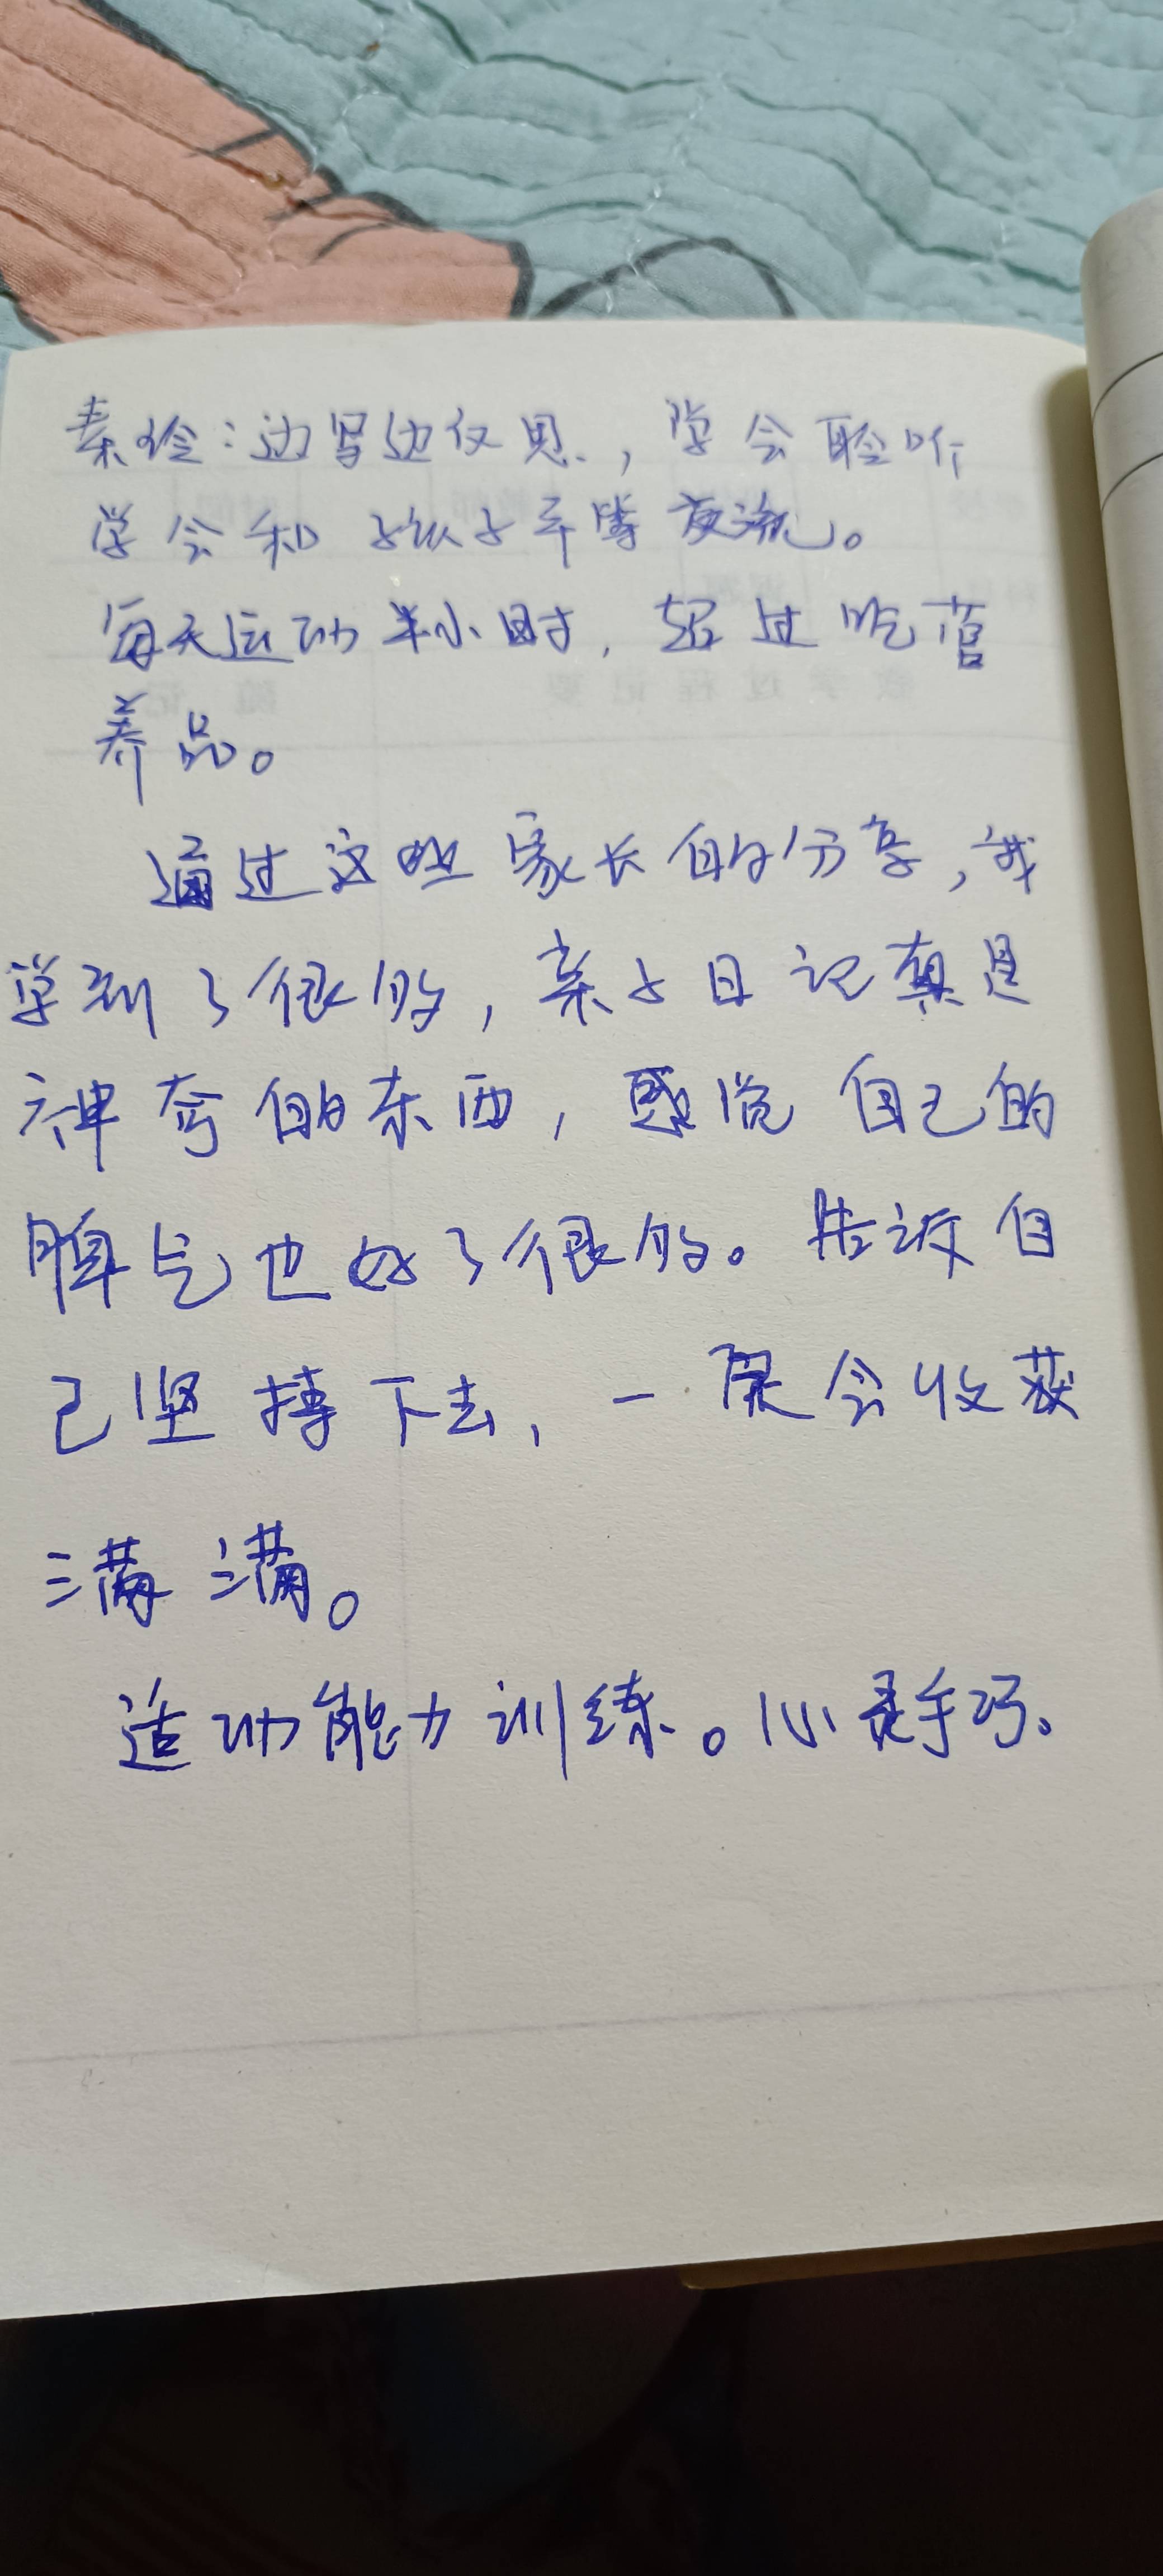 秦玲：边写边反思，学会聆听
学会和孩子平等交流。
每天运动半小时，超过吃营
养品。
通过这些家长的分享，我
学到了很多，亲子日记真是
神奇的东西，感觉自己的
脾气也好了很多。告诉自
己坚持下去，一定会收获
满满。
运动能力训练。心灵手巧。